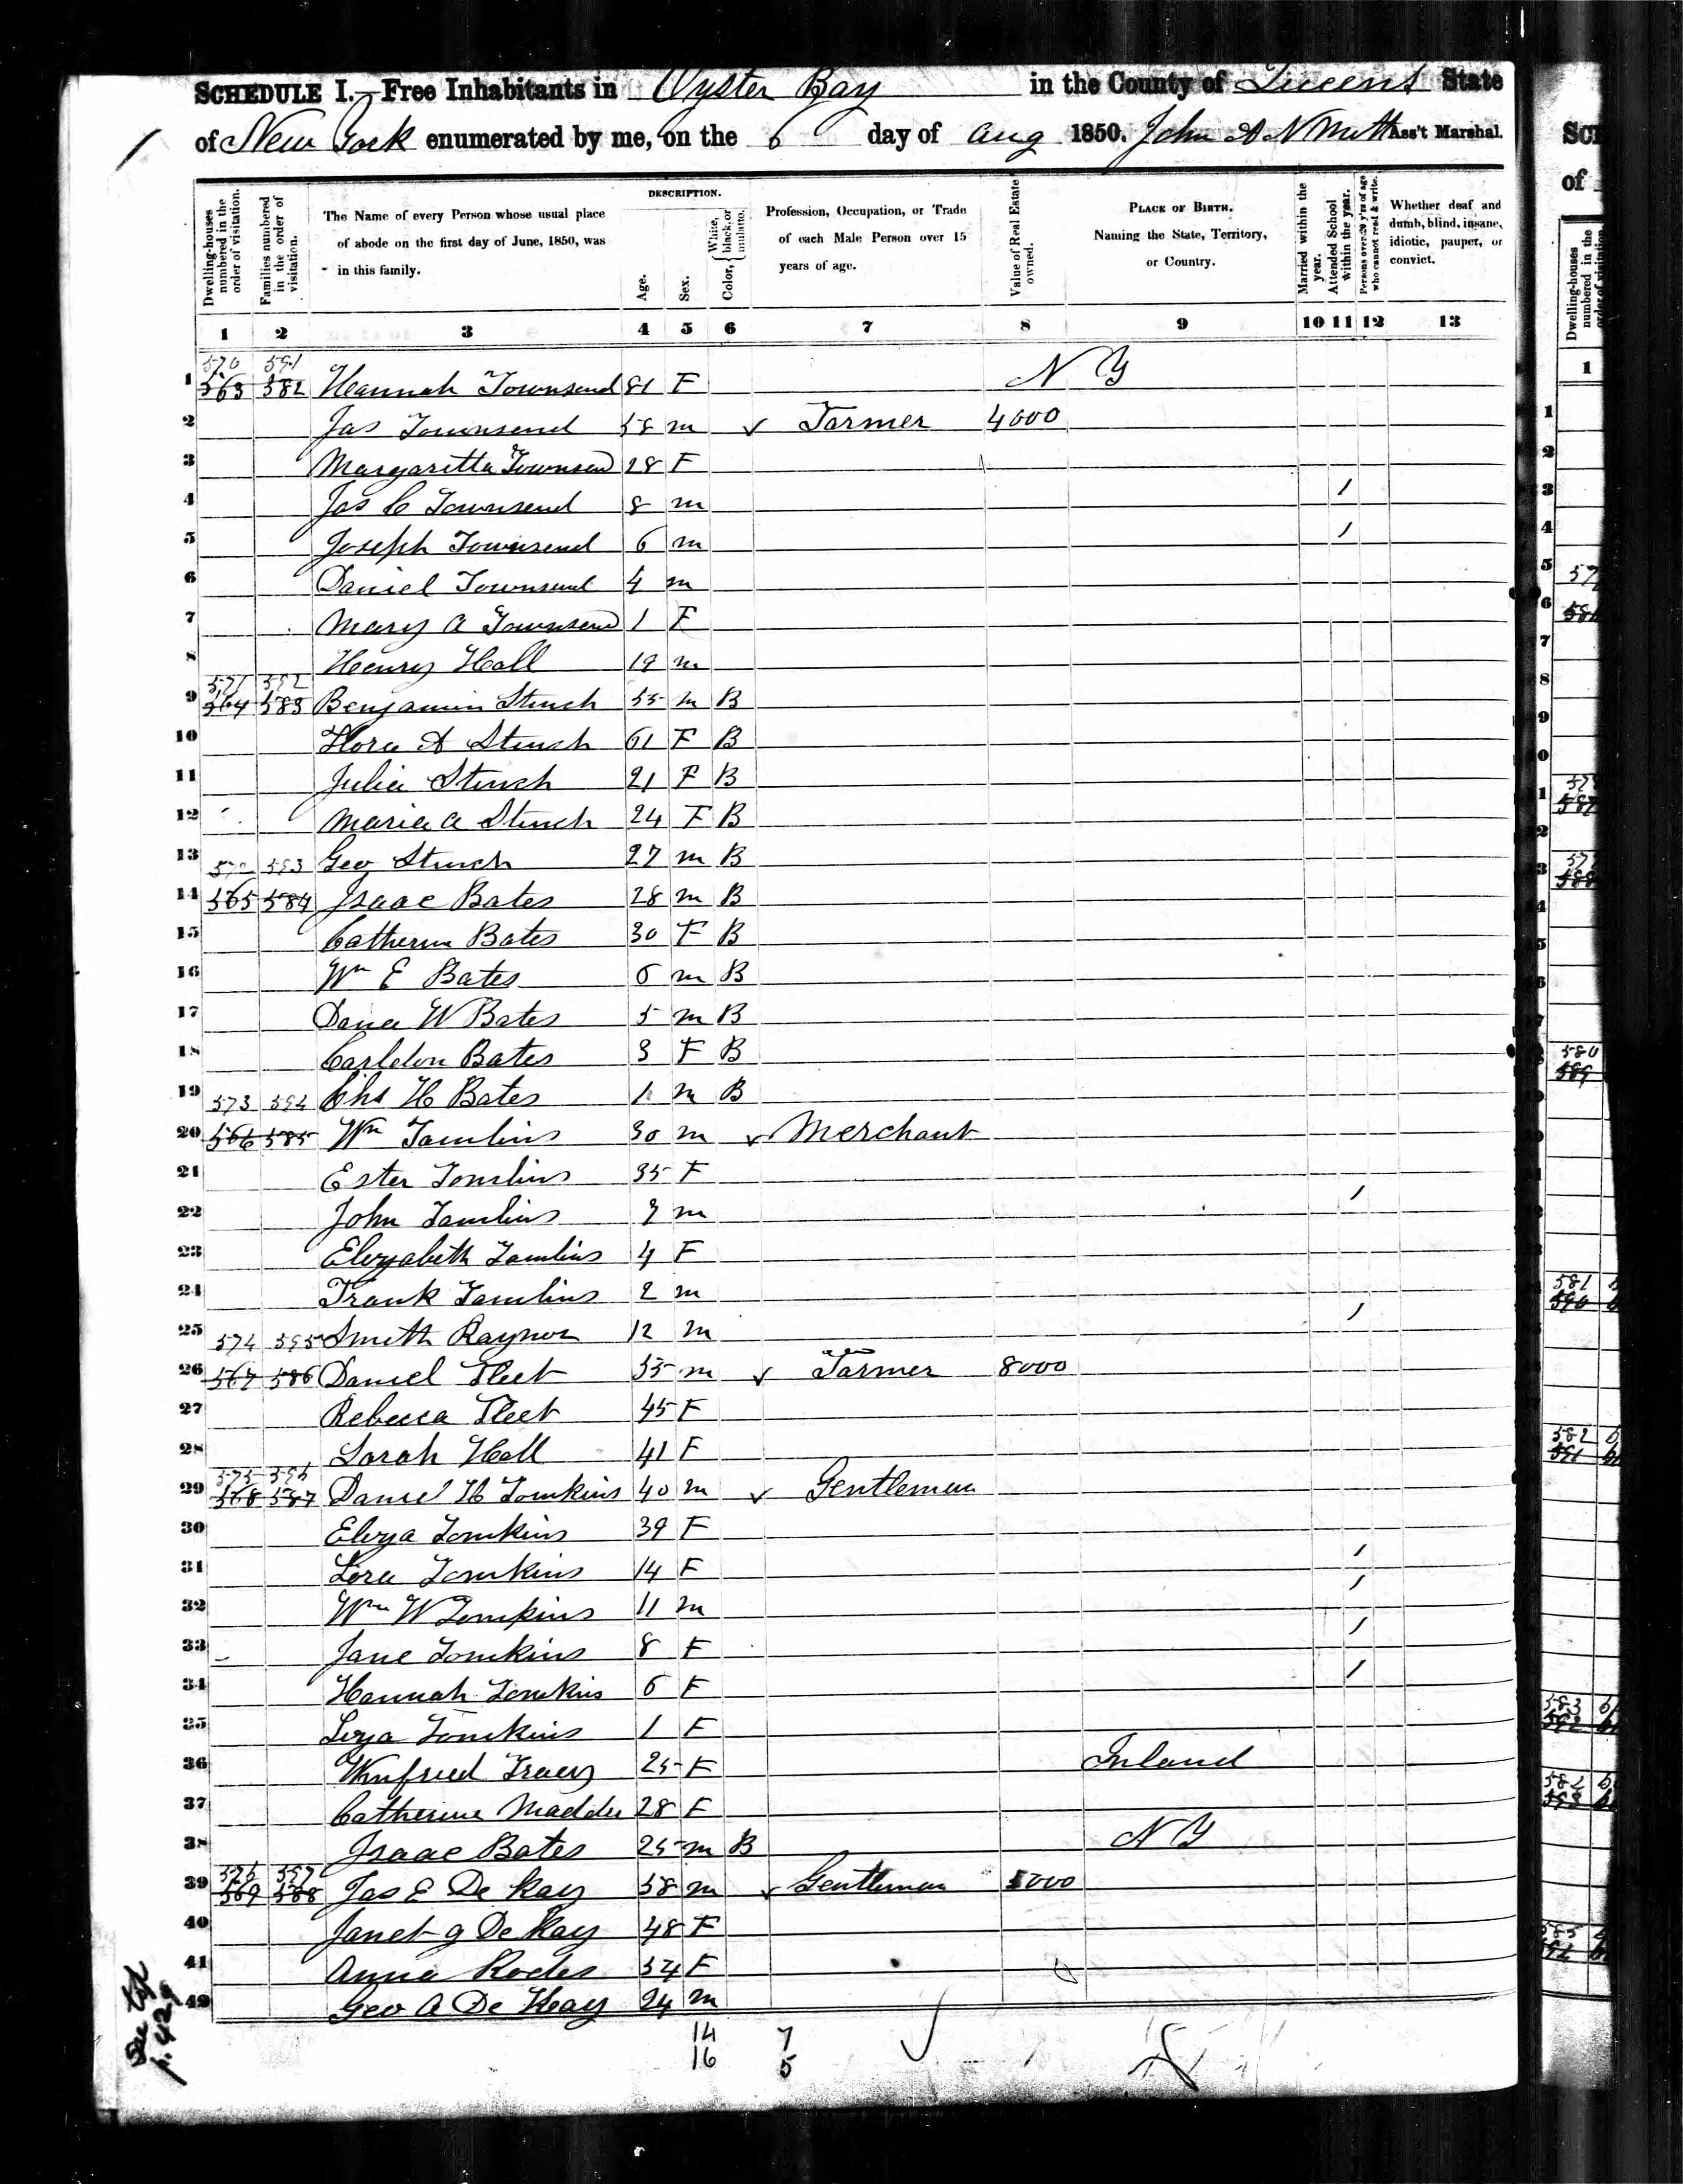 SCHEDULE I.—Free Inhabitants in Oyster Bay in the County of Queens State
of New York enumerated by me, on the 6 day of Aug 1850. John A N Mott Ass't Marshal.
Dwelling-houses numbered in the order of visitation.
Families numbered in the order of visitation.
The Name of every Person whose usual place of abode on the first day of June, 1850, was in this family.
DESCRIPTION.
Age.
Sex.
Color, { White, black, or mulatto.
Profession, Occupation, or Trade of each Male Person over 15 years of age.
Value of Real Estate owned.
PLACE OF BIRTH. Naming the State, Territory, or Country.
Married within the year.
Attended School within the year.
Persons over 20 y'rs of age who cannot read & write.
Whether deaf and dumb, blind, insane, idiotic, pauper, or convict.
1 2 3 4 5 6 7 8 9 10 11 12 13
570 591
1 563 582 Hannah Townsend 81 F N Y
2 Jas Townsend 58 m Farmer 4000
3 Margaretta Townsend 28 F
4 Jas C Townsend 8 m 1
5 Joseph Townsend 6 m 1
6 Daniel Townsend 4 m
7 Mary A Townsend 1 F
8 Henry Hall 19 m
571 592
9 564 583 Benjamin 55 m B
10 A 61 F B
11 Julia 21 F B
12 Maria A 24 F B
13 572 593 Geo 27 m B
14 565 584 Isaac Bates 28 m B
15 Catherin Bates 30 F B
16 Wm E Bates 6 m B
17 W Bates 5 m B
18 Carleton Bates 3 F B
19 573 594 Chs H Bates 1 m B
20 566 585 Wm Tomlins 30 m Merchant
21 Ester Tomlins 35 F
22 John Tomlins 7 m 1
23 Elizabeth Tomlins 4 F
24 Frank Tomlins 2 m
25 574 595 Smith Raynor 12 m 1
26 567 586 Daniel Fleet 55 m Farmer 8000
27 Rebecca Fleet 45 F
28 Sarah Hall 41 F
575 596
29 568 587 Daniel H Tomkins 40 m Gentleman
30 Eliza Tomkins 39 F
31 Tomkins 14 F 1
32 Wm W Tomkins 11 m 1
33 Jane Tomkins 8 F 1
34 Hannah Tomkins 6 F 1
35 Tomkins 1 F
36 Winfried Tracy 25 F Ireland
37 Catherine Madden 28 F
38 Isaac Bates 25 m B N Y
576 597
39 569 588 Jas E De Kay 58 m Gentleman 5000
40 Janet G De Kay 48 F
41 Anna 54 F
42 Geo A De Kay 24 m
14 7
16 5